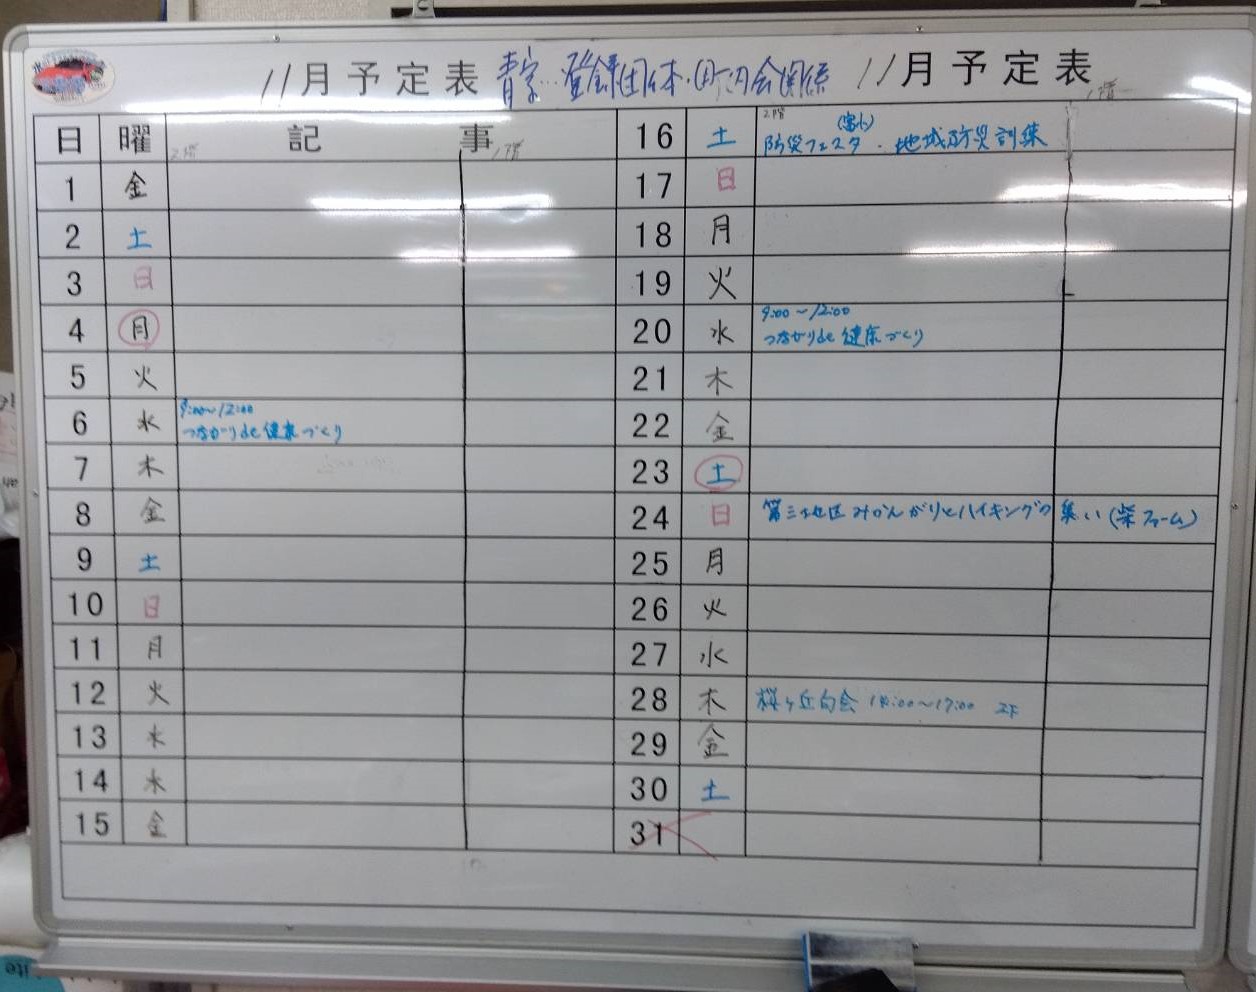 11月予定表 青字…登録団体・町内会関係 11月予定表
2階 1階
日 曜 記事
2階 1階
1 金
2 土
3 日
4 月
5 火
6 水 9:00〜12:00
つながりde健康づくり
7 木
8 金
9 土
10 日
11 月
12 火
13 水
14 木
15 金
16 土 (富小)
防災フェスタ・地域防災訓練
17 日
18 月
19 火
20 水 9:00〜12:00
つながりde健康づくり
21 木
22 金
23 土
24 日 第三地区みかんがりとハイキングの集い(柴ファーム)
25 月
26 火
27 水
28 木 桜ヶ丘句会 14:00〜17:00 2F
29 金
30 土
31